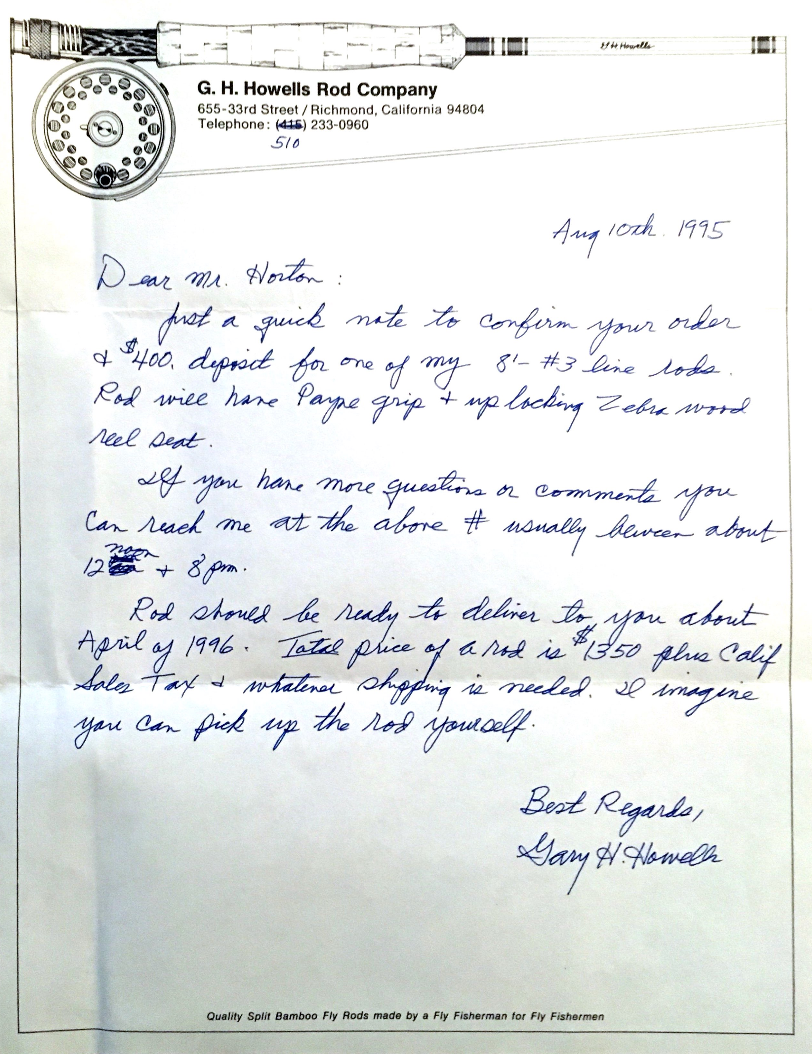 G. H. Howells
G. H. Howells Rod Company
655-33rd Street / Richmond, California 94804
Telephone: (415) 233-0960
510
Aug 10th. 1995
Dear Mr. Horton:
Just a quick note to confirm your order
& $400. deposit for one of my 8'- #3 line rods.
Rod will have Payne grip & up locking Zebra wood
reel seat.
If you have more questions or comments you
can reach me at the above # usually beween about
noon
12 & 8 pm.
Rod should be ready to deliver to you about
April of 1996. Total price of a rod is $1350 plus Calif
Sales Tax & whatever shipping is needed. I imagine
you can pick up the rod yourself.
Best Regards,
Gary H. Howells
Quality Split Bamboo Fly Rods made by a Fly Fisherman for Fly Fishermen